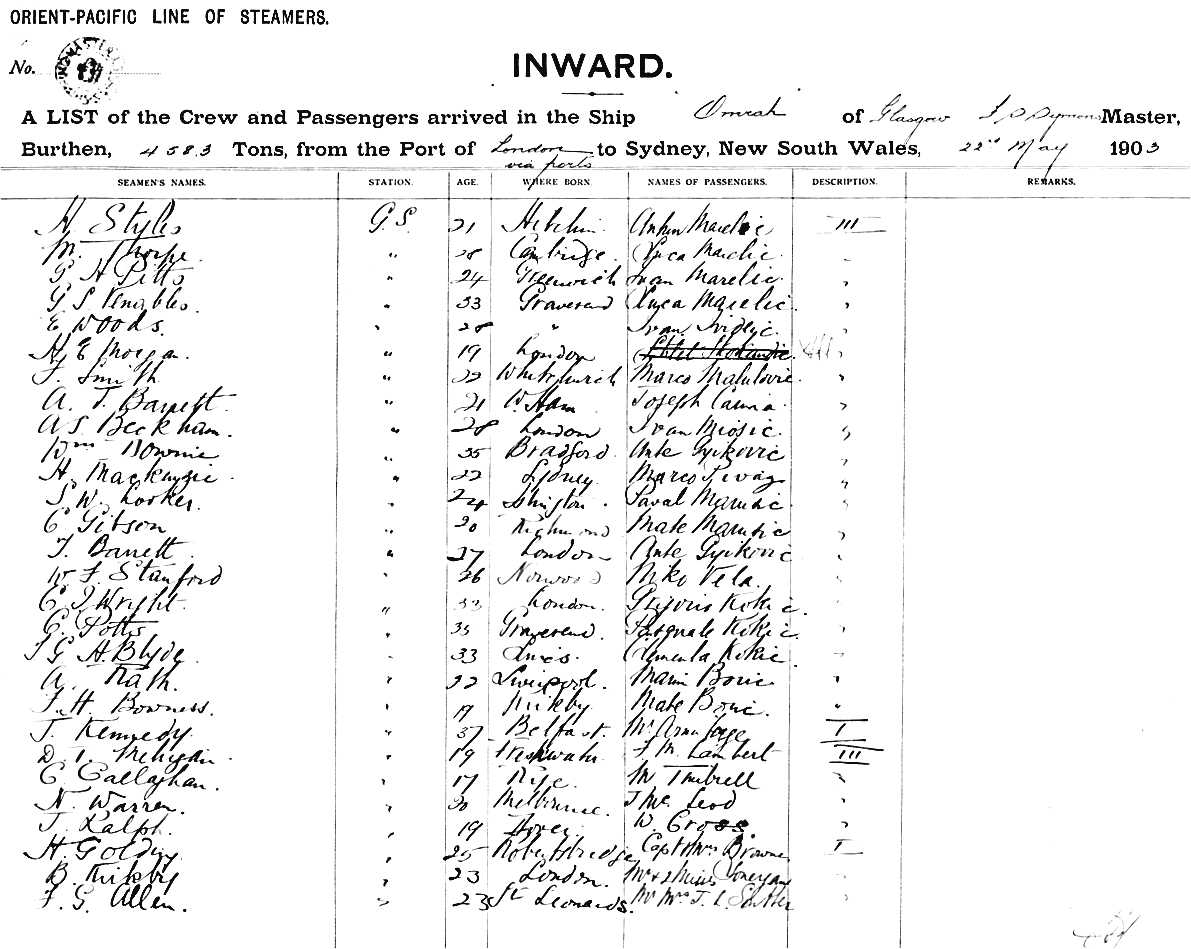 ORIENT-PACIFIC LINE OF STEAMERS.
No.
INWARD.
A LIST of the Crew and Passengers arrived in the Ship Omrah of Glasgow Master,
Burthen, 4583 Tons, from the Port of London to Sydney, New South Wales, 22nd May 1903
via ports
SEAMEN'S NAMES. STATION. AGE. WHERE BORN NAMES OF PASSENGERS. DESCRIPTION. REMARKS.
H Styles G.S. 21 Hitchin Marelic III
M. Thorpe " 28 Cambridge. Luca Marelic "
G H Pitts " 24 Greenwich Ivan Marelic "
G S Venables. " 33 Gravesend Luca Marelic "
E Woods. " 28 " Ivan "
H. E Morgan. " 19 London "
F. Smith " 22 Whitchurch Marco "
A. T. Barrett. " 21 W. Ham Joseph "
A S Beckham. " 28 London Ivan Miosic. "
Wm Downie " 35 Bradford Ante Gyikovic "
H. Mackenzie " 22 Sydney Marco "
S. W. Looker. " 24 Islington. Marusic. "
C Gibson " 20 Richmond Mate Marusic "
T. Barrett " 27 London Ante Gyikovic "
W F. Stanford " 26 Norwood Niko Vela. "
C J Wright. " 33 London. Kokic. "
C. Potts " 35 Gravesend. Pasquale Kokic "
J G A. Blyde. " 33 Kokic. "
A. Rath. " 22 Liverpool. Marin Boric "
F. H. Bowness. " 19 Kirkby Mate Boric. "
J. Kennedy. " 37 Belfast. I
D. T. Mehigan. " 19 F. M. Lambert III
C Callaghan. " 17 Rye. "
N. Warren. " 20 Melbourne. J McLeod "
J. Ralph. " 19 Dover. W. Cross. "
H. Golding " 25 Robertsbridge Capt Mrs Browne I
B. Kirkby " 23 London. "
F. G. Allen. " 23 St Leonards. Mr Mrs J. L.